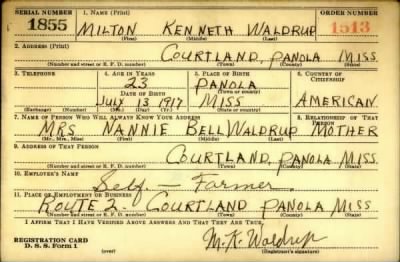 SERIAL NUMBER 1. NAME (Print) ORDER NUMBER
1855 MILTON KENNETH WALDRUP 1513
(First) (Middle) (Last)
2. ADDRESS (Print)
COURTLAND, PANOLA MISS.
(Number and street or R. F. D. number) (Town) (County) (State)
3. TELEPHONE 4. AGE IN YEARS 5. PLACE OF BIRTH 6. COUNTRY OF CITIZENSHIP
23 PANOLA
DATE OF BIRTH (Town or county)
JULY 13 1917 MISS AMERICAN
(Exchange) (Number) (Mo.) (Day) (Yr.) (State or country)
7. NAME OF PERSON WHO WILL ALWAYS KNOW YOUR ADDRESS 8. RELATIONSHIP OF THAT PERSON
MRS NANNIE BELL WALDRUP MOTHER
(Mr., Mrs., Miss) (First) (Middle) (Last)
9. ADDRESS OF THAT PERSON
COURTLAND, PANOLA MISS.
(Number and street or R. F. D. number) (Town) (County) (State)
10. EMPLOYER'S NAME
Self - Farmer.
11. PLACE OF EMPLOYMENT OR BUSINESS
ROUTE 2- COURTLAND PANOLA MISS
(Number and street or R. F. D. number) (Town) (County) (State)
I AFFIRM THAT I HAVE VERIFIED ABOVE ANSWERS AND THAT THEY ARE TRUE.
REGISTRATION CARD M. K. Waldrup
D. S. S. Form 1 (over) (Registrant's signature)